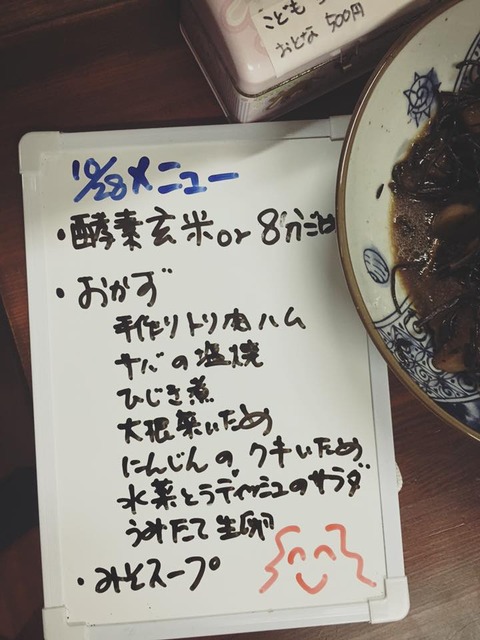 こども
おとな 500円
10/28メニュー
・酵素玄米or 8分
・おかず
手作りトリ肉ハム
サバの塩焼
ひじき煮
大根葉いため
にんじんのクキいため
水菜とラディッシュのサラダ
うみたて生卵
・みそスープ